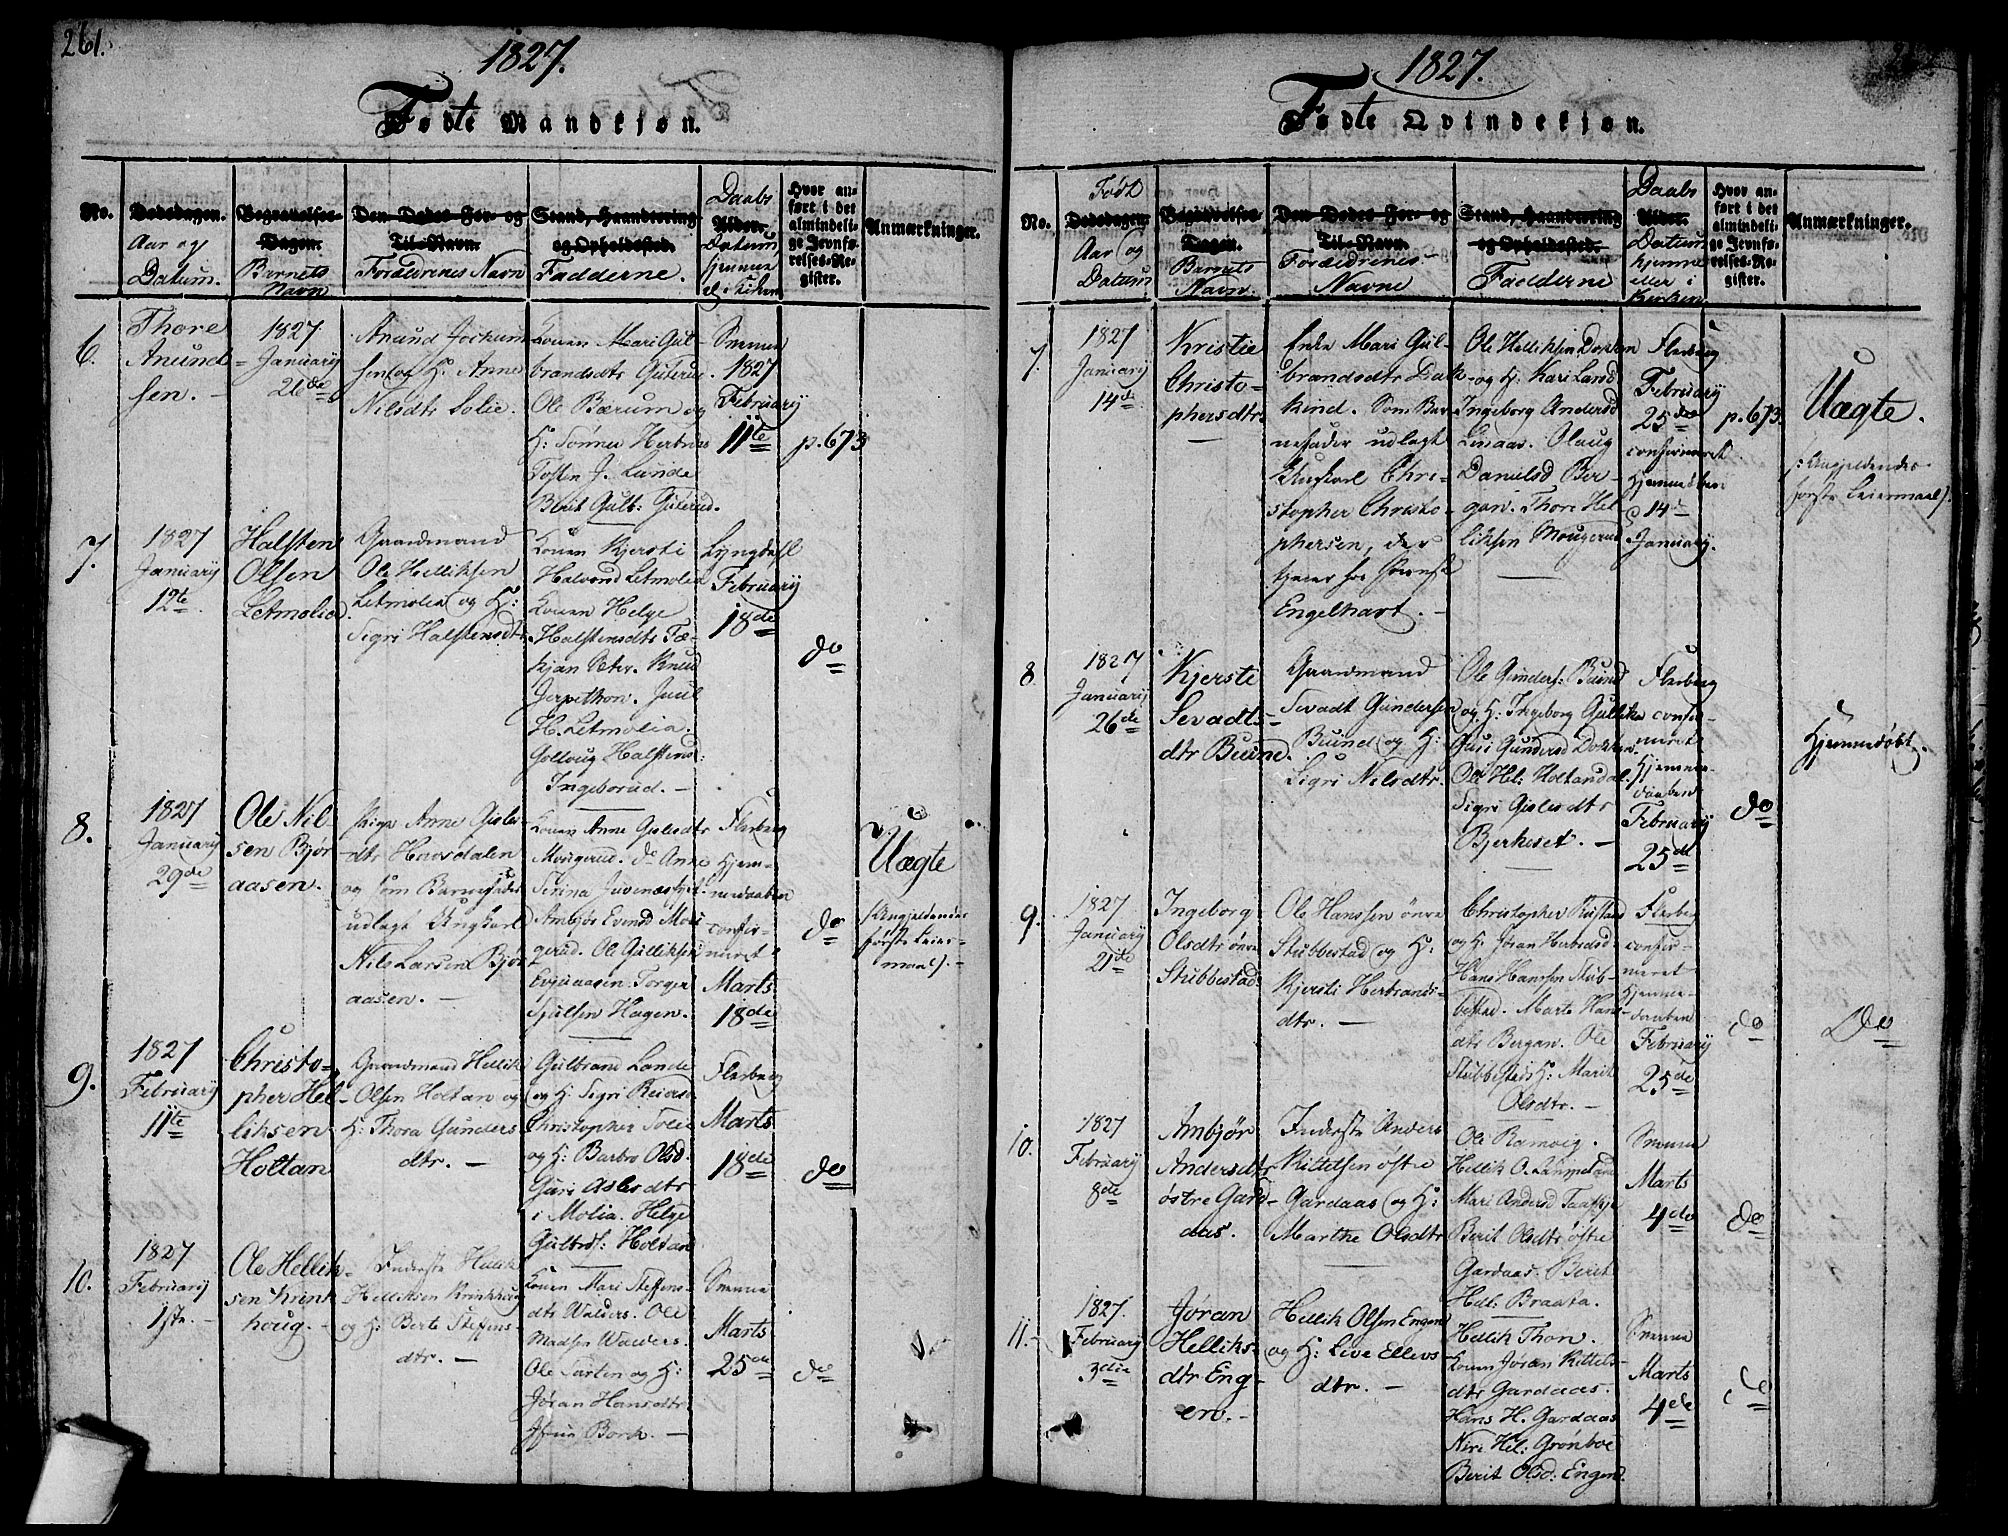 261.
1827.
Fødte Mandkjøn.
No.
Dødsdagen.
Aar og
Datum.
Begravelses-
Dagen.
Barnets
Navn
Den Dødes For- og
Til-Navn.
Forældrenes Navn
Stand, Haandtering
og Opholdssted.
Fadderne.
Daabs
Alder.
Datum,
hjemme
el. i Kirken
Hvor an-
ført i det
almindeli-
ge Jevnfø-
relses-Re-
gister.
Anmærkninger.
6.
Thore
Anund-
sen. -
1827
January
26de
Anund Jochum-
sen og H: Anne
Nilsdtr Solie.
Konen Mari Gul-
brandsdtr Guterud.
Ole Bærum og
H:
Tosten J. Lunde
Berit Gulb: Guterud.
Svenne
1827
February
11te
p. 673
7.
1827
January
12te
Halsten
Olsen
Letmolia
Gaardmand
Ole Helliksen
Letmolia og H:
Sigri Halstensdtr
Konen Kjersti
Halvorsd Letmolia
Konen Helge
Halstensdtr
Peter. Knud
Juul
H. Letmolia.
Golloug Halstensd:
Ingeborud. -
Lyngdahl
February
18de
do
8.
1827
January
29de
Ole Nil-
sen Bjør-
aasen.
Pige Anne Gisle-
dtr Hovsdalen
og som Barnefader
udlagt Ungkarl
Nils Larsen Bjør-
aasen. -
Konen Anne Gislesdtr
Mougerud. do Anne
Serina
Ambjør Evensd Mou-
gerud. Ole Gulliksen
Evjuaasen. Torger
Hagen.
Flesberg
Hjem-
medaaben
confir-
meret
Marts
18de
do
Uægte
(Angjeldendes
første Leier-
maal). -
9.
1827
February
11te
Christo-
pher Hel-
liksen
Holtan
Gaardmand Hellik
Olsen Holtan og
H: Thora Gunders-
dtr. -
Gulbrand Lande
og H: Sigri Reiersd
Christopher Solie
og H: Barbro Olsd.
Guri Aslesdtr
i Molia. Helge
Gulbrds: Holtan
Flesberg
Marts
18de
do
10.
1827
February
1ste. -
Ole Hellik-
sen Krink-
houg. -
Inderste Hellik
Helliksen Krinkhoug
og H: Berte Steffens-
dtr. -
Konen Mari Steffens-
dtr Walders. Ole
Madsen Walders.
Ole Sarten og H:
Jøran Hansdtr
Bork. -
Svenne
Marts
25de
do
1827.
Fødte Qvindekjøn.
No.
Født
Dødsdagen.
Aar og
Datum
Begravelses-
Dagen.
Barnets
Navn.
Den Dødes For- og
Til-Navn.
Forældrenes
Navne
Stand, Haandtering
og Opholdssted.
Fadderne
Daabs
Alder.
Datum
hjemme
eller i
Kirken
Hvor an-
ført i det
almindeli-
ge Jevnfø-
relses-Re-
gister.
Anmærkninger.
7.
1827
January
14de
Kristie
Christo-
phersdtr.
Enke Mari Gul-
brandsdtr Dok-
kind. Som Bar-
nefader udlagt
Ungkarl Chri-
stopher Christo-
phersen, der
tjener hos
Engelhart. -
Ole Helliksen Dokken
og H: Kari Larsd
Ingeborg Andersd
Linaas. Olaug
Danielsd Ber-
gan. Thore Hel-
liksen Mougerud
Flesberg
February
25de
confirmeret
Hjemmedøbt
d 14de
January.
p. 673.
Uægte.
(Angjeldendes
første Leiermaal).
8
1827
January
26de
Kjerste
Sevadts-
dtr Buind.
Gaardmand
Sevadt Gundersen
Buind og H:
Sigri Nilsdtr.
Ole Gunders: Buind
og H: Ingeborg Gulliksd
Guri Gundersd Dokken.
Ole Hel: Holtandal.
Sigri Gislesdtr
Bjerkeset. -
Flesberg
confir-
meret
Hjemme-
daaben
February
25de
do
Hjemmedøbt.
9.
1827
January
21de
Ingeborg
Olsdtr øvre
Stubbestad
Ole Hanssen øvre
Stubbestad og H:
Kjersti Herbrands-
dtr. -
Christopher Rustand
og H: Jøran Herbrdsd:
Hans Hanssen Stub-
bestad. Marte Hans-
dtr Bergan. Ole
Stubbestad H: Marit
Olsdtr. -
Flesberg
confir-
meret
Hjemme-
daaben
February
25de
do
Do
10.
1827
February
8de
Ambjør
Andersdtr
østre Gard-
aas.
Inderste Anders
Kittelsen østre
Gardaas og H:
Marthe Olsdtr
Ole Ramvig.
Hellik O. Lampeland
Mari Andersd
Berit Olsdtr østre
Gardaas. Berit
Hel: Braata.
Svenne
Marts
4de
do
11.
1827.
February
3die
Jøran
Helliks-
dtr Eng-
en. -
Hellik Olsen Engen
og H: Live Ellevs-
dtr. -
Hellik Thon.
Konen Jøran Kittels-
dtr Gardaas.
Hans H. Gardaas
Niri Hel: Grønboe
Berit Olsd: Engen.
Svenne
Marts
4de
do